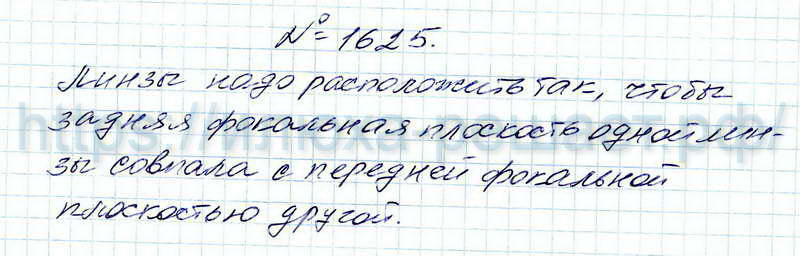 № 1625.
Линзы надо расположить так, чтобы
задняя фокальная плоскость одной лин-
зы совпала с передней фокальной
плоскостью другой.